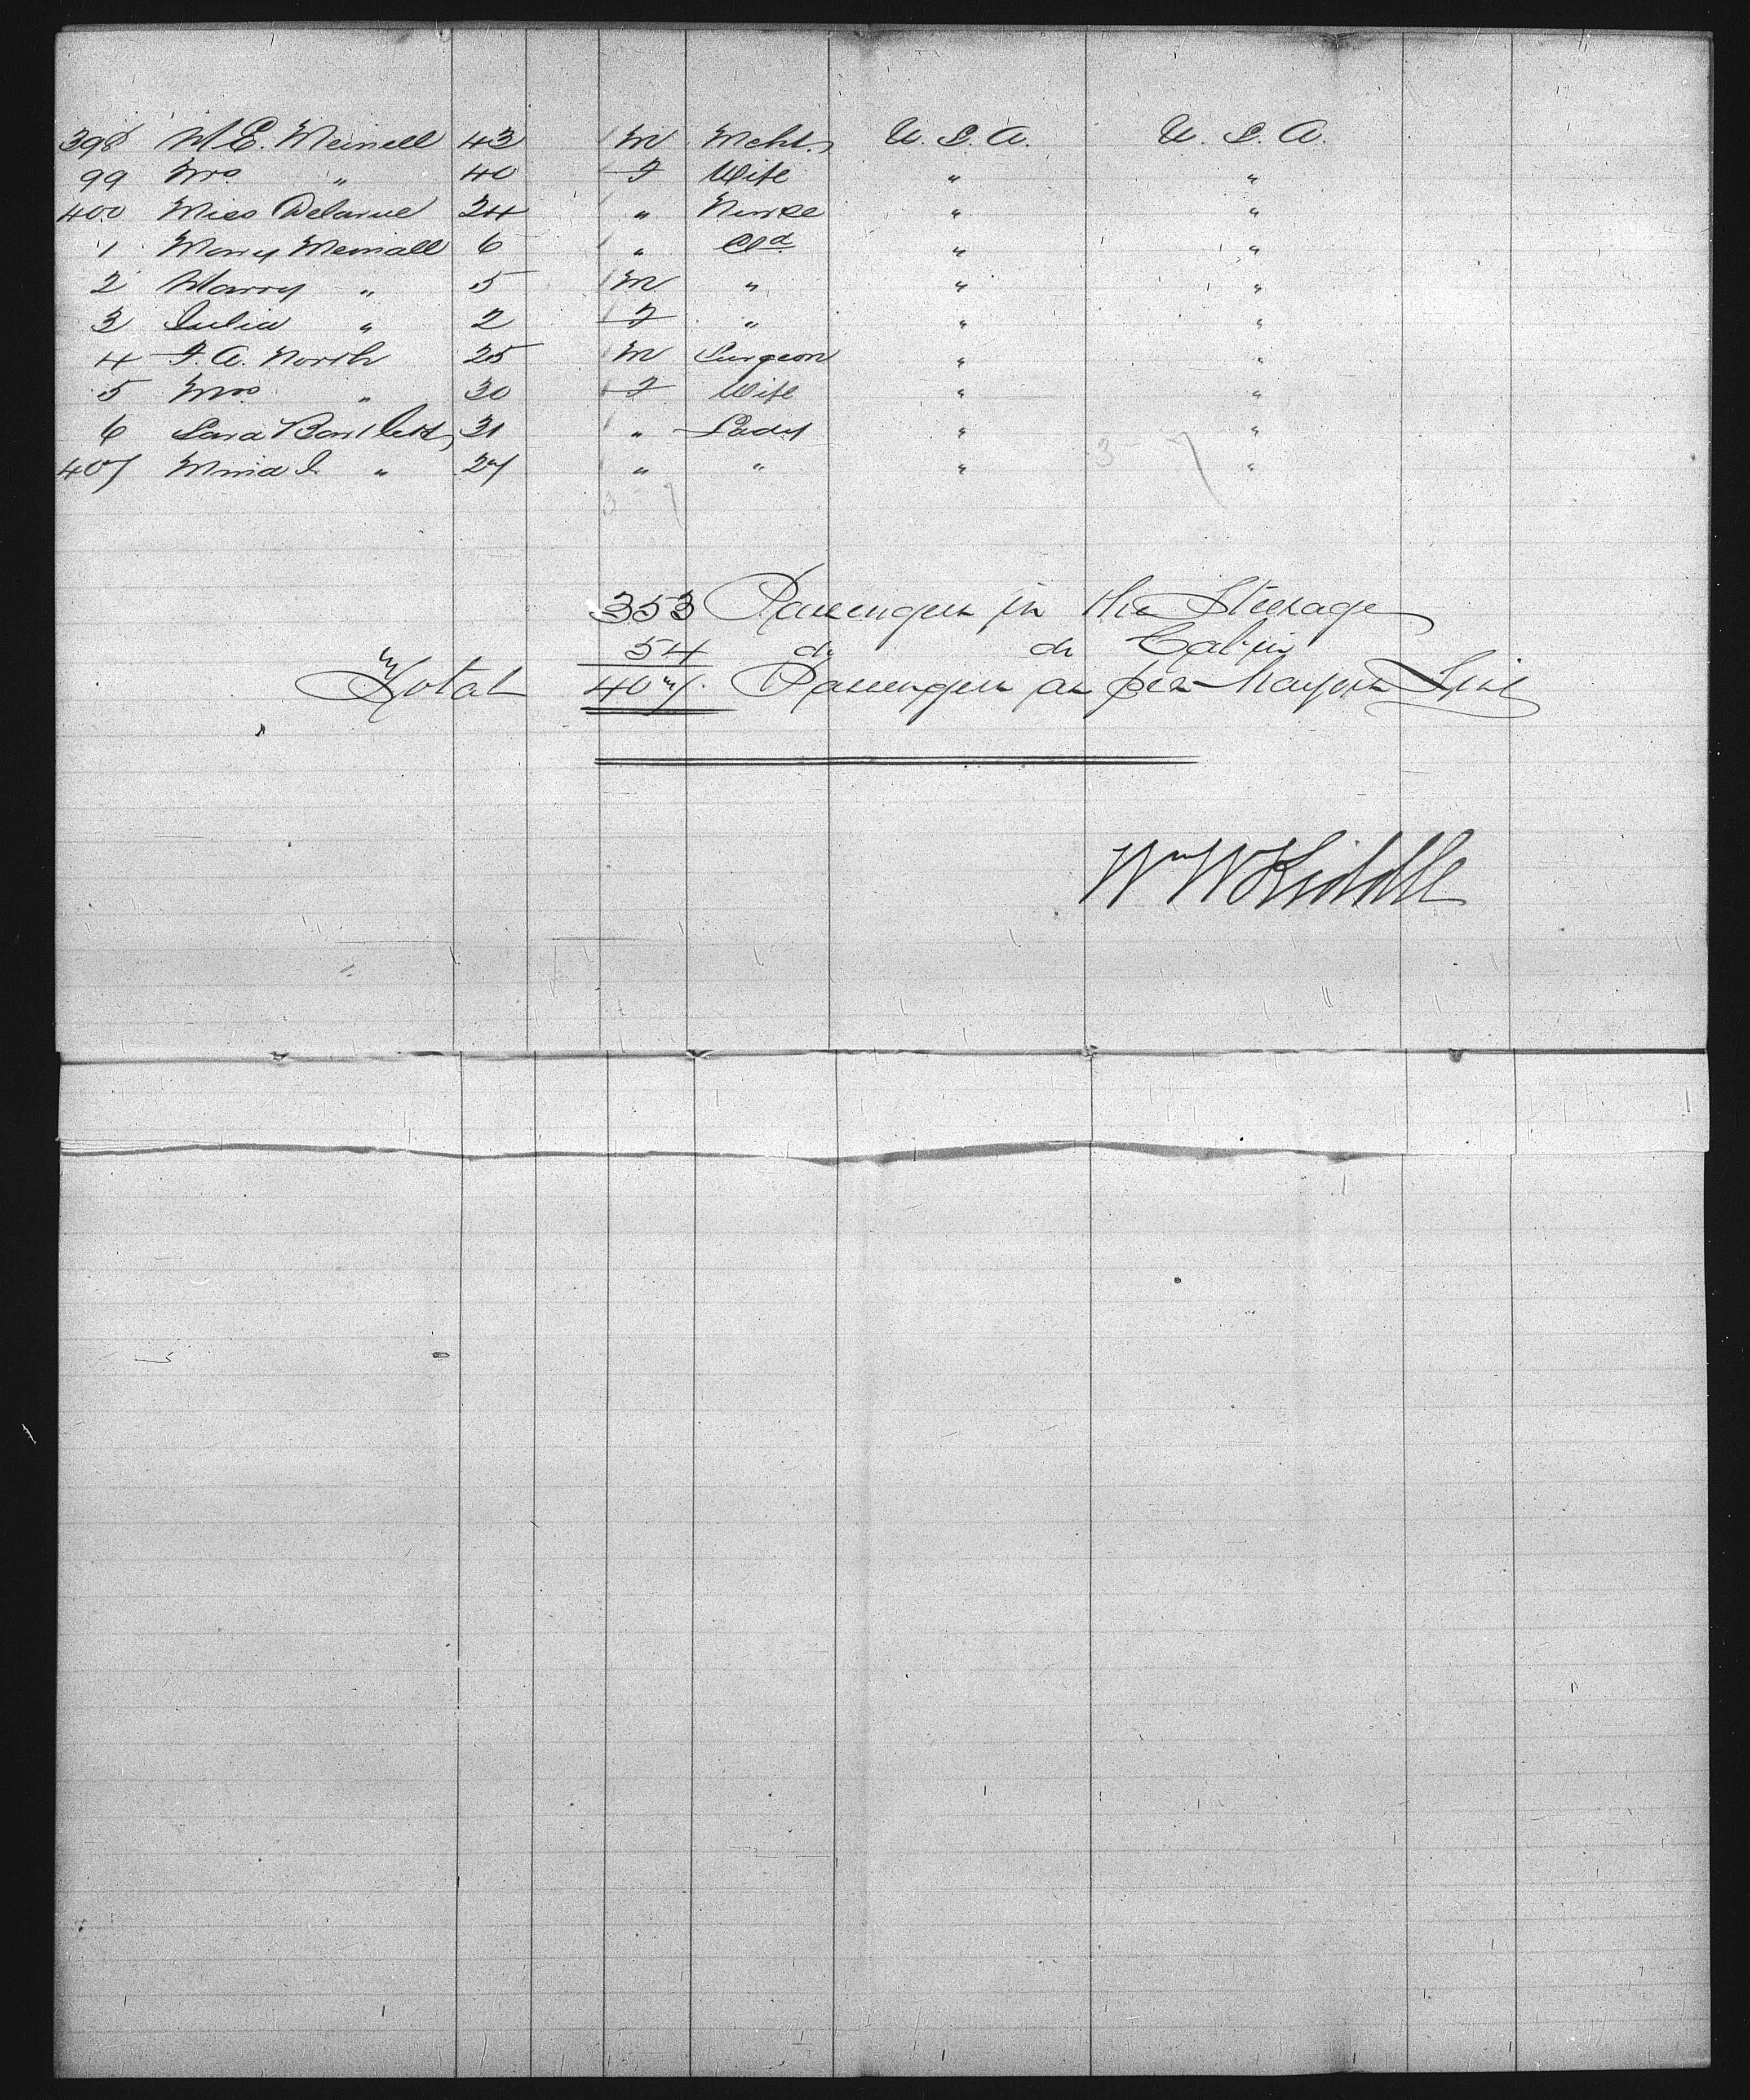 398 W. E. Meinell 43 M Mcht. U. S. A. U. S. A.
99 Mrs " 40 F Wife " "
400 Miss Delarue 24 " Nurse " "
1 Mary Meinall 6 " Cld " "
2 Harry " 5 M " " "
3 Julia " 2 F " " "
4 F. A. North 25 M Surgeon " "
5 Mrs " 30 F Wife " "
6 Sara Bartlett 31 " Lady " "
407 " 27 " " " "
3 7
3 7
353 Passengers in the Steerage
54 do do Cabin
Total 407 Passengers as per List
Wm W Kiddle